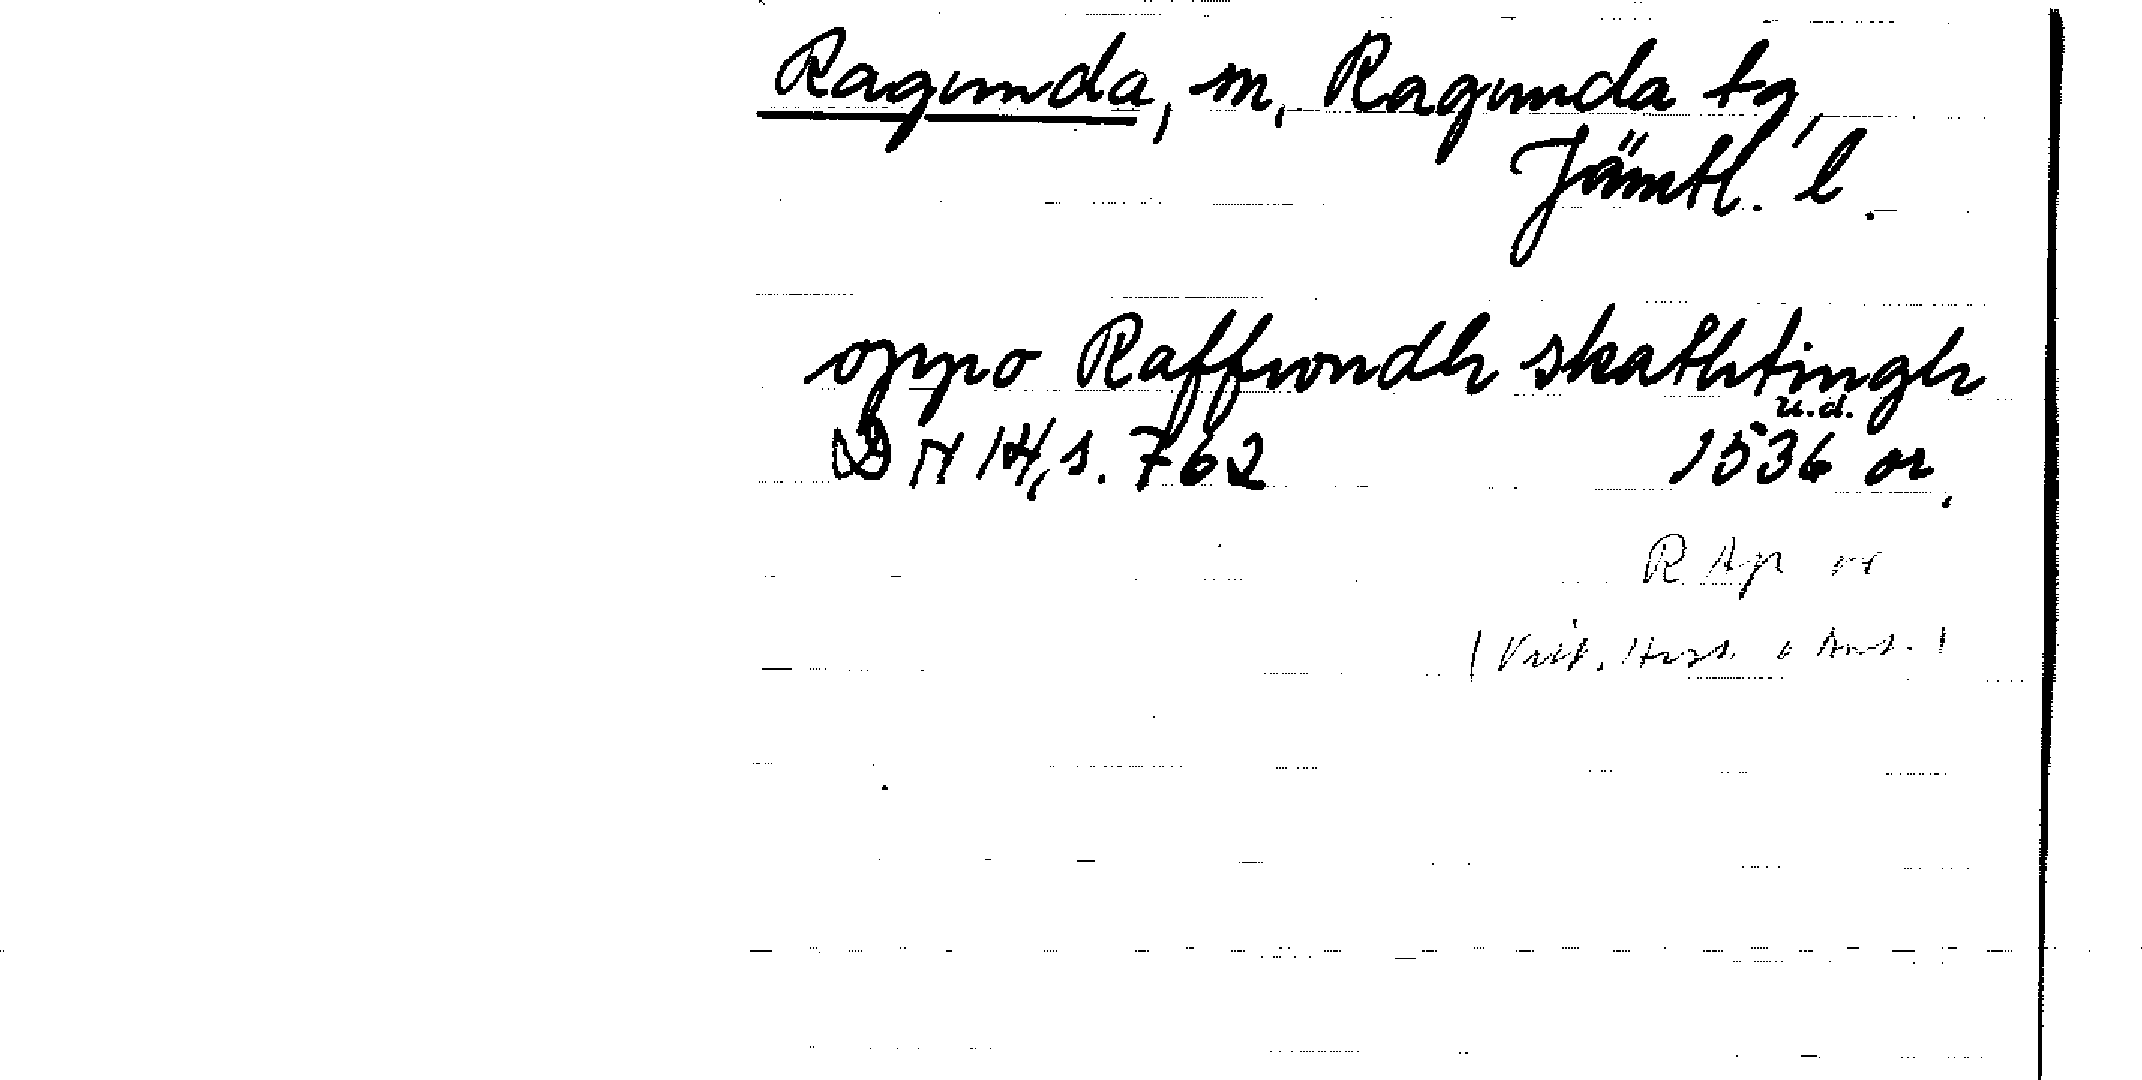 Ragunda, sn, Ragunda tg,
Jämtl. l.
oppo Raffwndh skathtingh
u.d.
DN 14, s. 762 1536 or.
R Ap or
(Vitt. Hist. o Ant.)